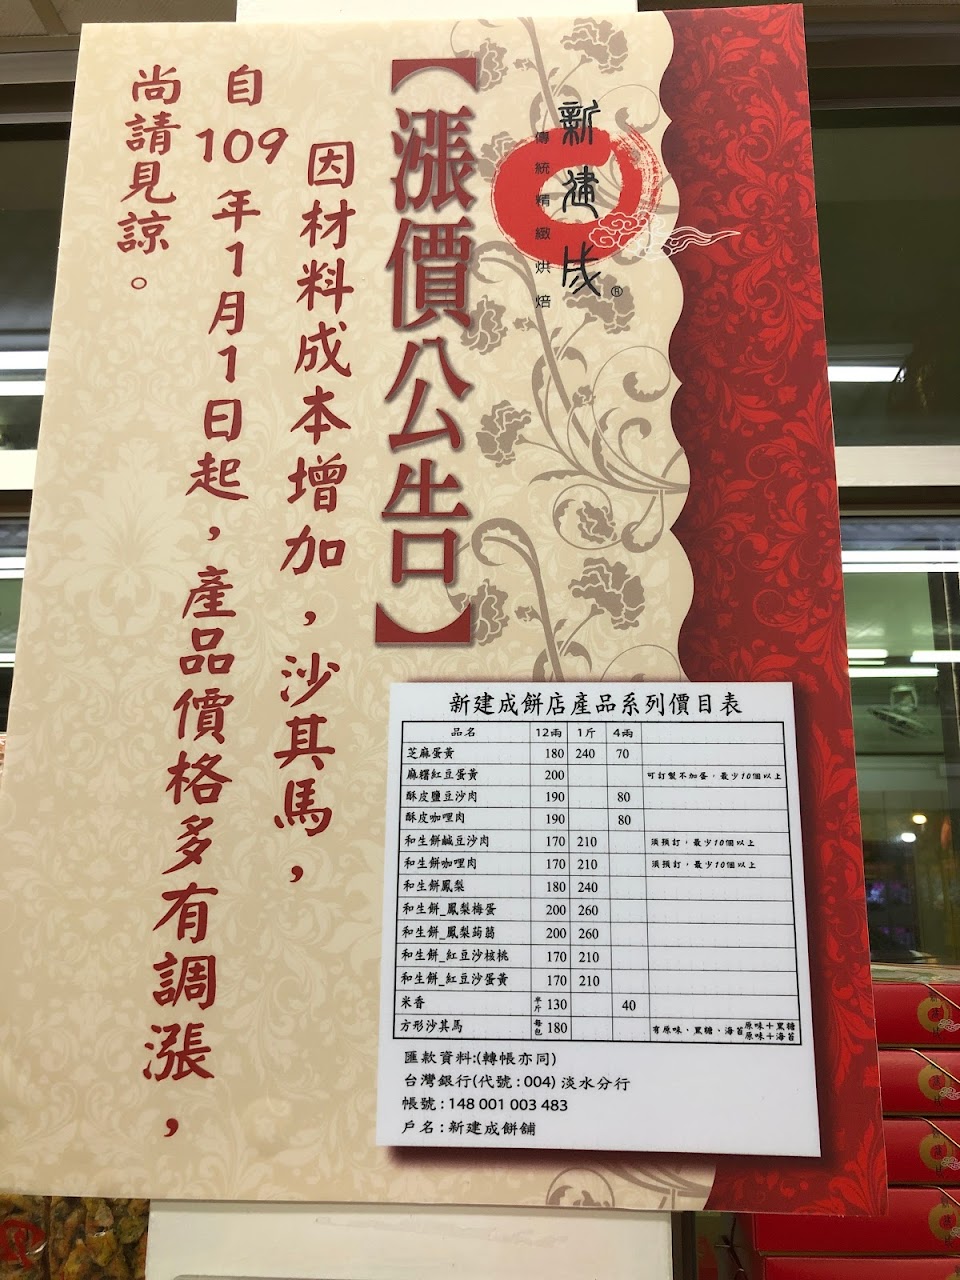 新建成®
傳統精緻烘焙
【漲價公告】
因材料成本增加，沙其馬，
自109年1月1日起，產品價格多有調漲，
尚請見諒。
新建成餅店產品系列價目表
品名 12兩 1斤 4兩
芝麻蛋黃 180 240 70
麻糬紅豆蛋黃 200 可訂製不加蛋，最少10個以上
酥皮鹽豆沙肉 190 80
酥皮咖哩肉 190 80
和生餅鹹豆沙肉 170 210 須預訂，最少10個以上
和生餅咖哩肉 170 210 須預訂，最少10個以上
和生餅鳳梨 180 240
和生餅_鳳梨梅蛋 200 260
和生餅_鳳梨蒟蒻 200 260
和生餅_紅豆沙核桃 170 210
和生餅_紅豆沙蛋黃 170 210
米香 半斤 130 40
方形沙其馬 每包 180 有原味、黑糖、海苔 原味＋黑糖 原味＋海苔
匯款資料:(轉帳亦同)
台灣銀行(代號：004) 淡水分行
帳號：148 001 003 483
戶名：新建成餅舖